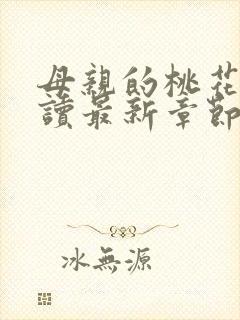 母親的桃花
讀最新章節
冰無源